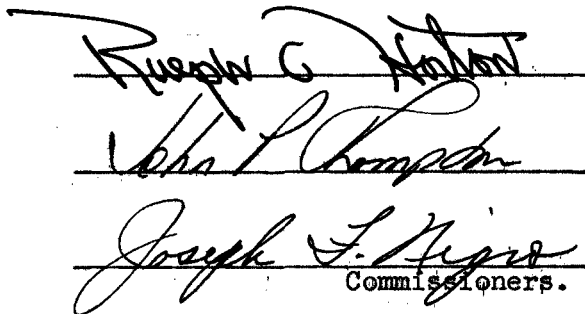 Rueph C Horton
John P Thompson
Joseph F. Nigro
Commissioners.